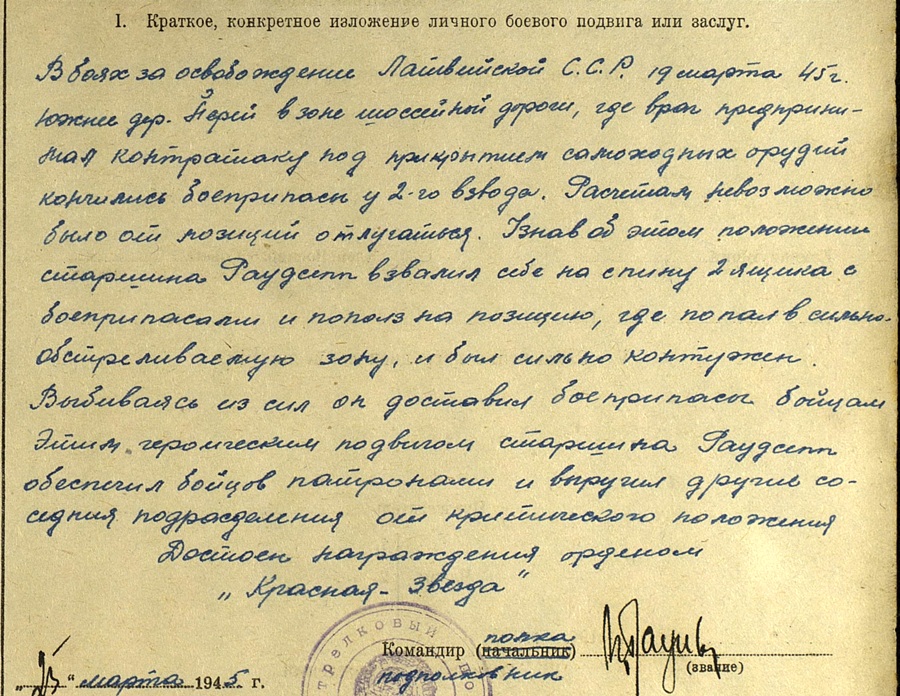 I. Краткое, конкретное изложение личного боевого подвига или заслуг.
В боях за освобождение Латвийской С.С.Р. 19 марта 45 г.
южнее дер. Перей в зоне шоссейной дороги, где враг предприни-
мал контратаку под прикрытием самоходных орудий
кончились боеприпасы у 2-го взвода. Расчетам невозможно
было от позиций отлучаться. Узнав об этом положении
старшина Раудсепп взвалил себе на спину 2 ящика с
боеприпасами и пополз на позицию, где попал в сильно-
обстреливаемую зону, и был сильно контужен.
Выбиваясь из сил он доставил боеприпасы бойцам
Этим героическим подвигом старшина Раудсепп
обеспечил бойцов патронами и выручил другие со-
седния подразделения от критического положения
Достоен награждения орденом
„Красная-Звезда"
трелковый по
полка
Командир (начальник)
подполковник
(звание)
" марта 1945 г.